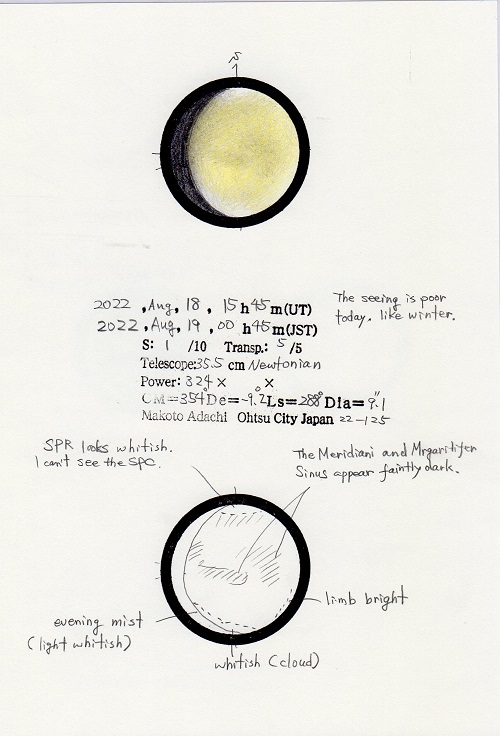 S
2022 , Aug, 18 , 15 h 45 m (UT)
2022 , Aug, 19 , 00 h 45 m (JST)
The seeing is poor
today. like winter.
S: 1 /10 Transp.: 5 /5
Telescope: 35.5 cm Newtonian
Power: 324 × ×
CM=354° De=-9.2° Ls=288° Dia=9.″1
Makoto Adachi Ohtsu City Japan 22-125
SPR looks whitish.
I can't see the SPC.
The Meridiani and Mrgaritifer
Sinus appear faintly dark.
limb bright
evening mist
(light whitish)
whitish (cloud)